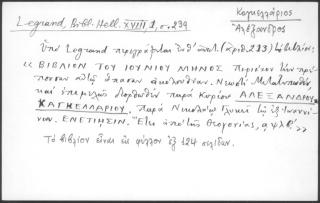 Legrand, Bibl. Hell. XVIII 1, σ. 239
Καγκελλάριος
Ἀλέξανδρος
Ὑπὸ Legrand περιγράφεται ὑπ' ἀριθ. 223) βιβλίον:
« ΒΙΒΛΙΟΝ ΤΟΥ ΙΟΥΝΙΟΥ ΜΗΝΟΣ περιέχον τὴν πρέ-
πουσαν αὐτῷ ἅπασαν ἀκολουθίαν. Νεωστὶ Μετατυπωθὲν,
καὶ ἐπιμελῶς διορθωθὲν παρὰ Κυρίου ΑΛΕΞΑΝΔΡΟΥ
ΚΑΓΚΕΛΛΑΡΙΟΥ. παρὰ Νικολάῳ Γλυκεῖ τῷ ἐξ Ἰωαννί-
νων. ΕΝΕΤΙΗΣΙΝ. Ἔτει ἀπὸ τῆς Θεογονίας, αψλβ'. »
Τὸ βιβλίον εἶναι εἰς φύλλον ἐξ 124 σελίδων.